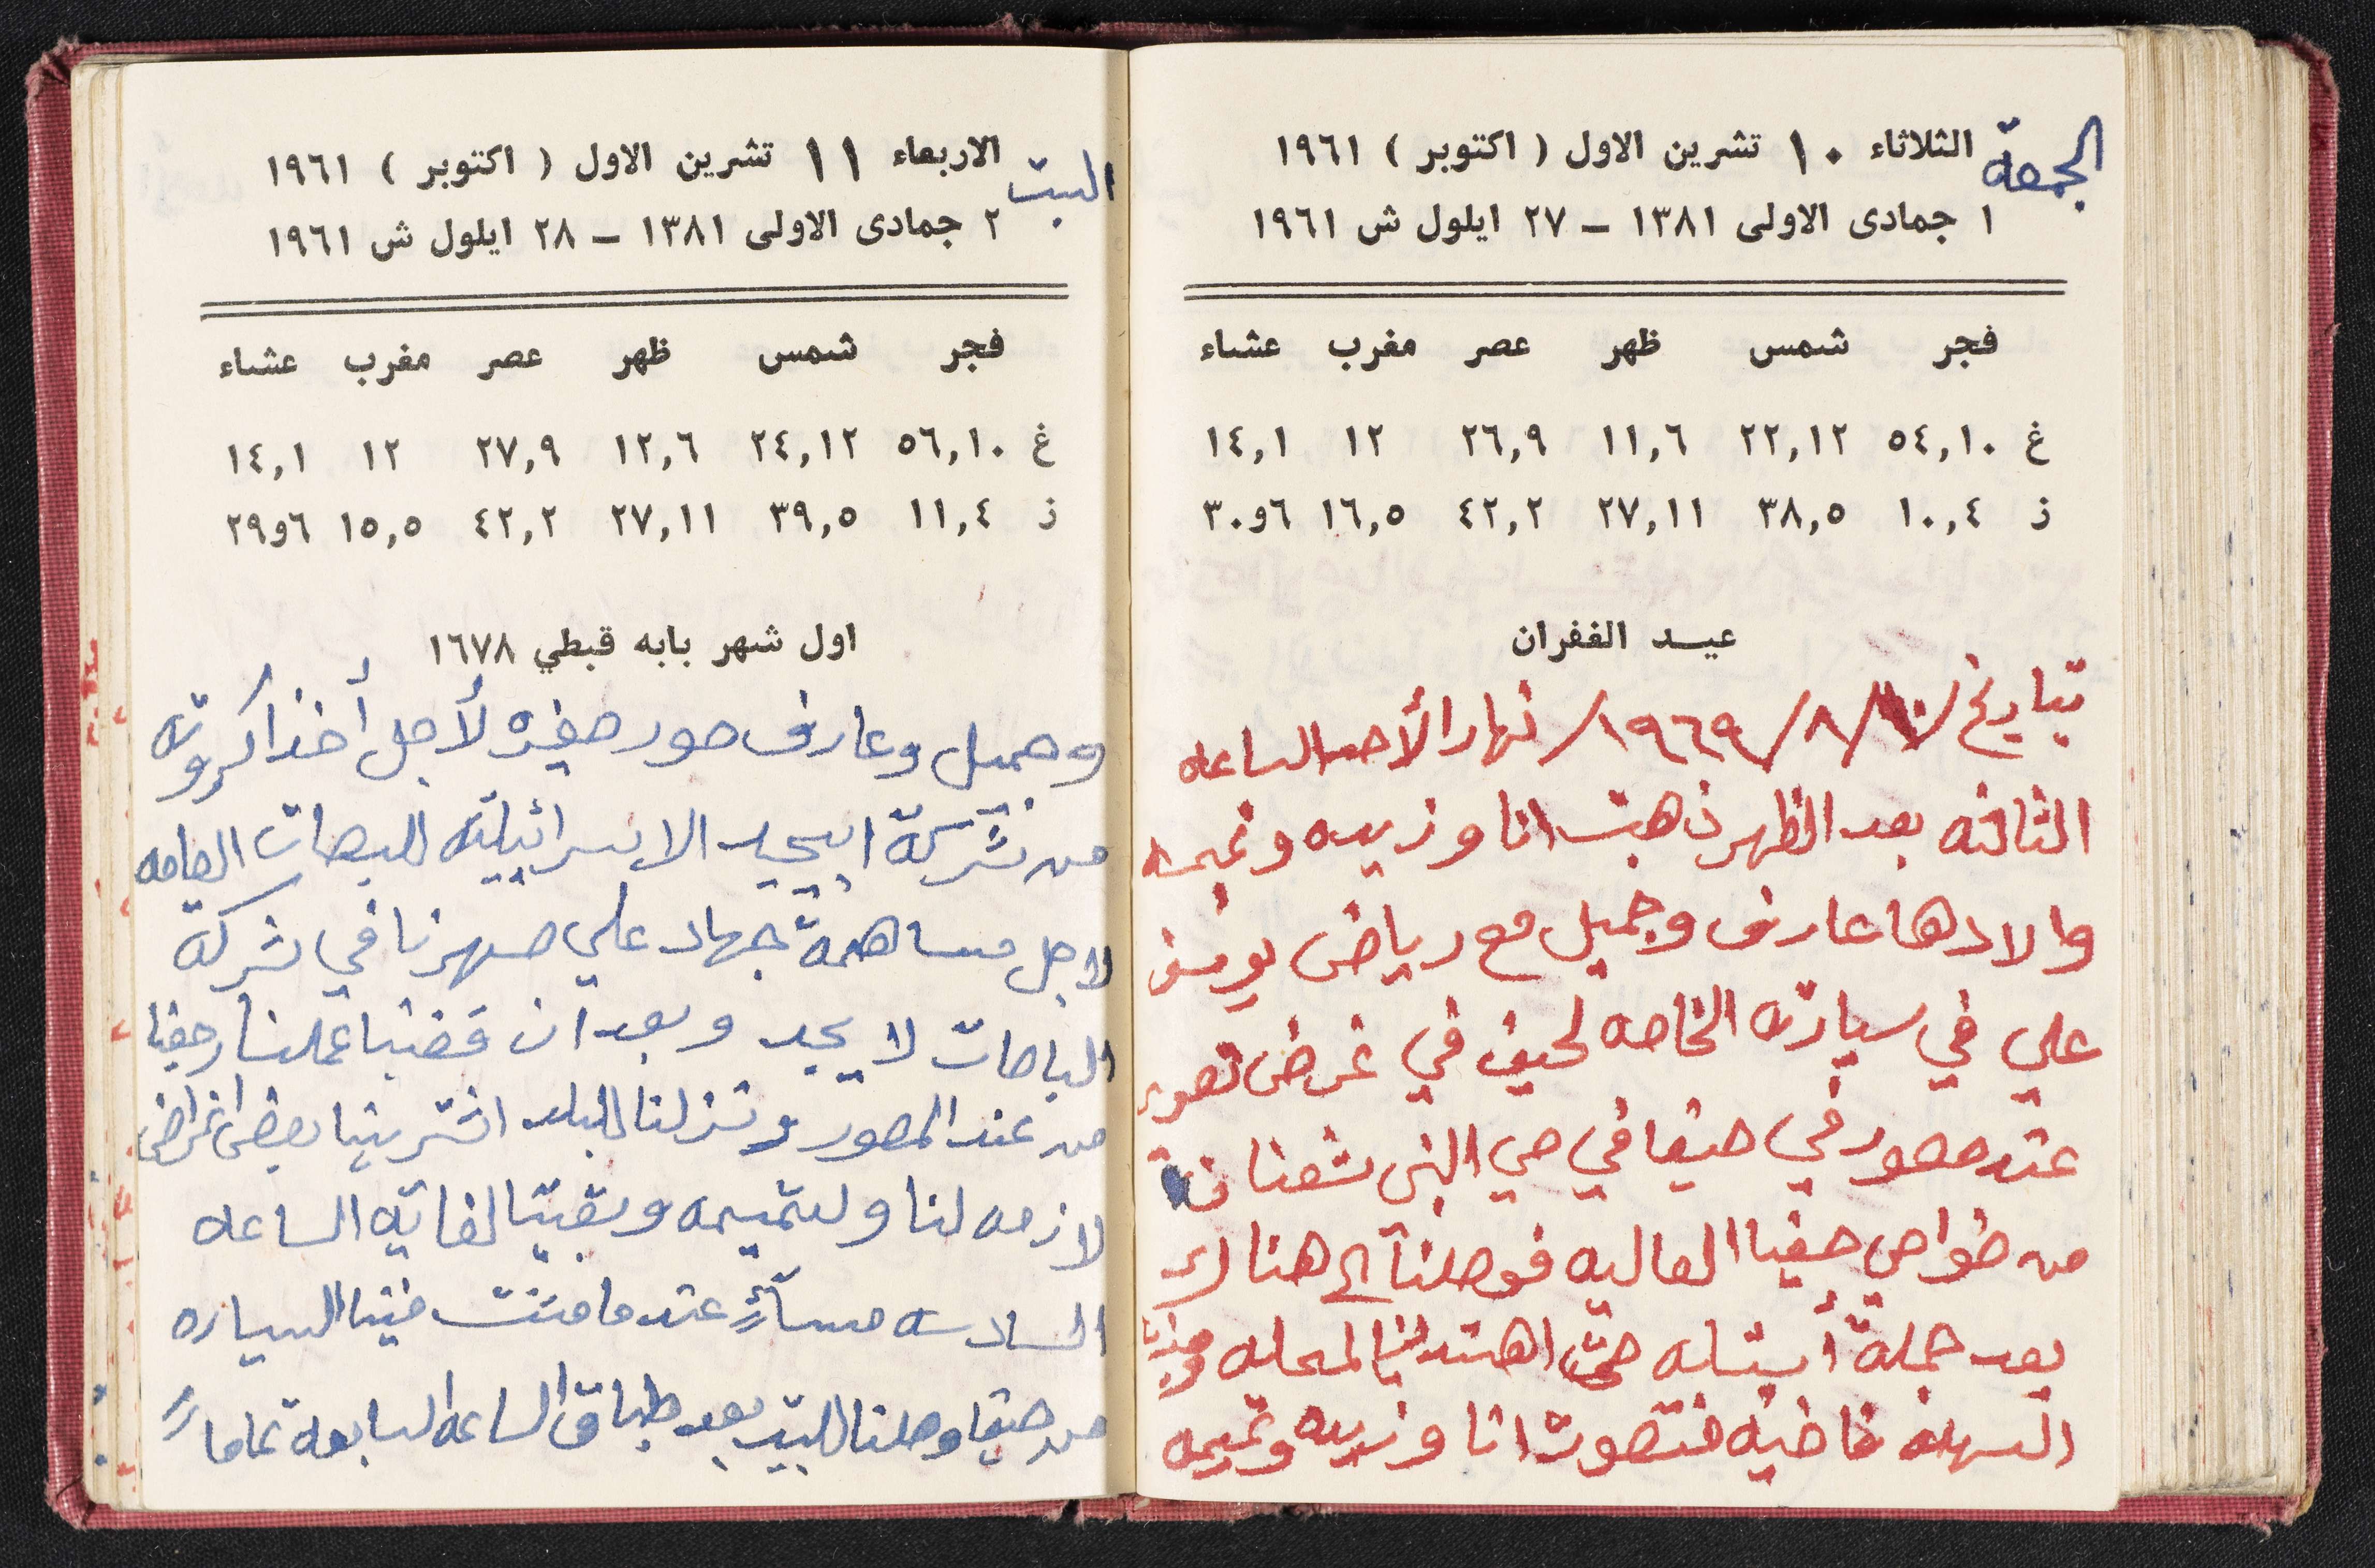 الجمعة
الثلاثاء ١٠ تشرين الاول ( اكتوبر ) ١٩٦١
١ جمادى الاولى ١٣٨١ – ٢٧ ايلول ش ١٩٦١
فجر شمس ظهر عصر مغرب عشاء
غ ٥٤,١٠ ٢٢,١٢ ١١,٦ ٢٦,٩ ١٢ ١٤,١
ز ١٠,٤ ٣٨,٥ ٢٧,١١ ٤٢,٢ ١٦,٥ ٦و٣٠
عيد الغفران
بتاريخ /١٠/٨/١٩٦٩/ نهار الأحد الساعه
الثانيه بعد الظهر ذهبت انا وزيده وتميمه
والادها عارف وجميل مع رياض يوسف
علي في سيارته الخاصه لحيفا في غرض تصوير
عند مصور في حيفا في حي النبي شعنان
من ضواحي حيفا العاليه فوصلنا الى هناك
بعد جملة أسئله حتى اهتدينا المحله
السهله فاضيه فتصورت انا وزيده وتميمه
السبت
الاربعاء ١١ تشرين الاول ( اكتوبر ) ١٩٦١
٢ جمادى الاولى ١٣٨١ – ٢٨ ايلول ش ١٩٦١
فجر شمس ظهر عصر مغرب عشاء
غ ٥٦,١٠ ٢٤,١٢ ١٢,٦ ٢٧,٩ ١٢ ١٤,١
ز ١١,٤ ٣٩,٥ ٢٧,١١ ٤٢,٢ ١٥,٥ ٦و٢٩
اول شهر بابه قبطي ١٦٧٨
وجميل وعارف صور صغيره لأجل أخذ اكروته
من شركة ايجد الاسرائيلية للبصات العامه
لاجل مساهمة جهاد علي صهرنا في شركة
الباصات لايجد وبعد ان قضينا عملنا رجعنا
من عند المصور ونزلنا للبلد اشترينا بعض اغراض
لازمه لنا ولتميمه وبقينا لغاية الساعه
السادسه مسآءً عندما مشت فينا السياره
من حيفا وصلنا للبيت بعد طباق الساعه السابعة تماماً